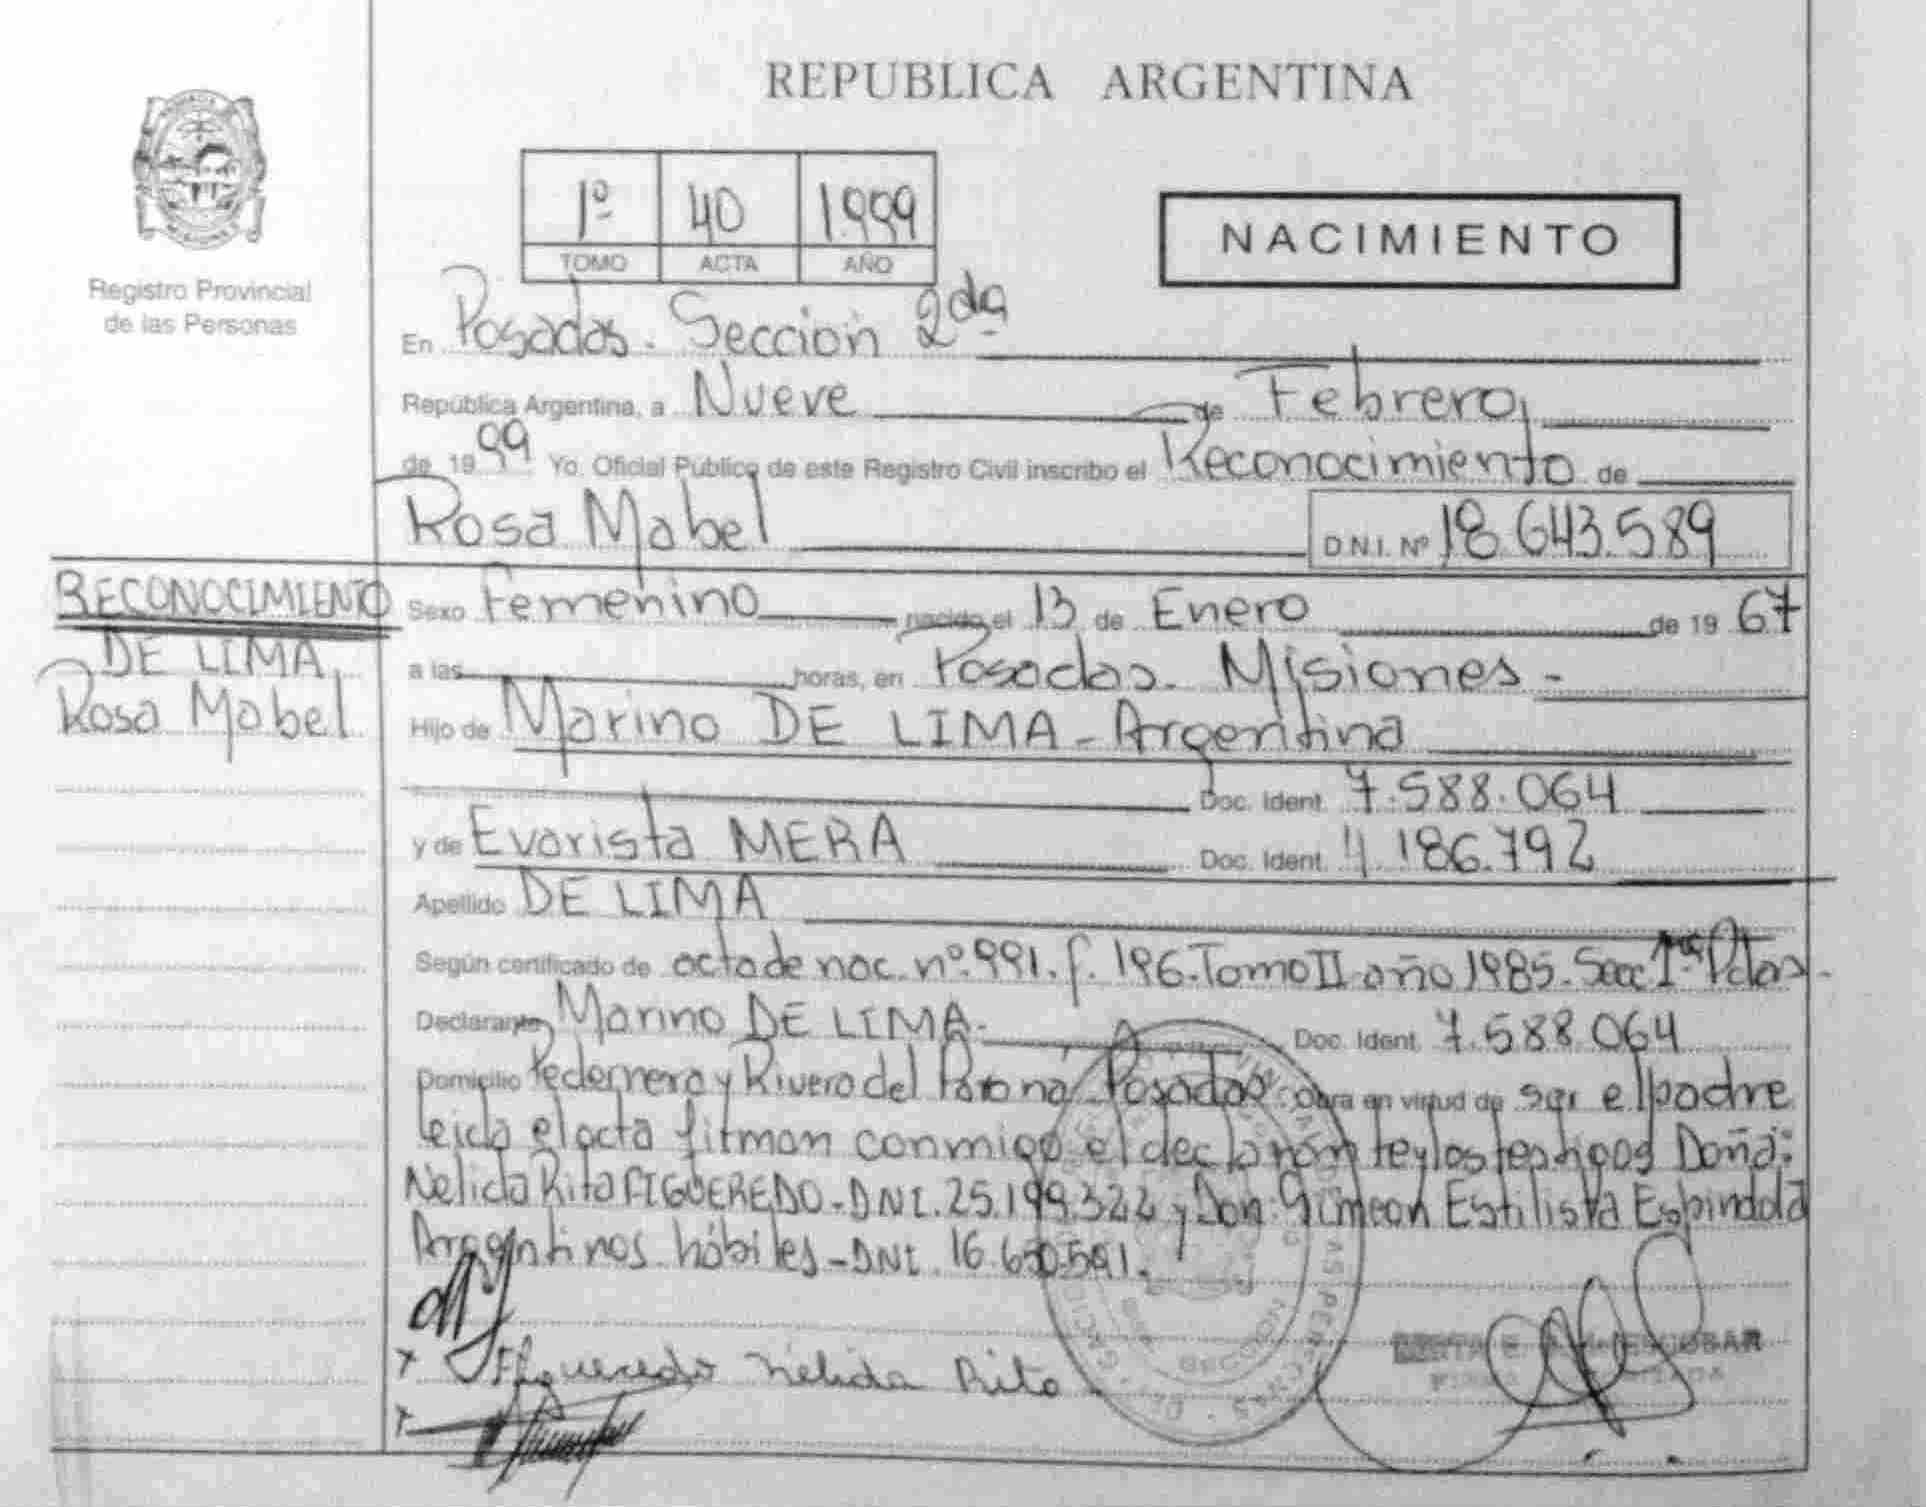 REPUBLICA ARGENTINA
1º 40 1999
TOMO ACTA AÑO
NACIMIENTO
Registro Provincial
de las Personas
En Posadas. Sección 2da
República Argentina, a Nueve de Febrero
de 1999 Yo. Oficial Público de este Registro Civil inscribo el Reconocimiento de
Rosa Mabel D.N.I. Nº 18.643.589
RECONOCIMIENTO
DE LIMA
Rosa Mabel
Sexo Femenino nacido el 13 de Enero de 1967
a las horas, en Posadas. Misiones -
Hijo de Marino DE LIMA - Argentina
Doc. Ident. 7.588.064
y de Evarista MERA Doc. Ident. 4.186.792
Apellido DE LIMA
Según certificado de acta de nac. nº 991. f. 196. Tomo II año 1985. Secc 1ra Pdas -
Declarante Marino DE LIMA - Doc. Ident. 7.588.064
Domicilio Pedernera y Rivera del Paraná Posadas obra en virtud de ser el padre
leida el acta firman conmigo el declarante y los testigos Doña:
Nelida Rita FIGUEREDO - DNI. 25.199.322 y Don: Simeon Estilista Espindola
Argentinos hábiles - DNI. 16.650.591.
Figueredo Nelida Rita
ESCOBAR